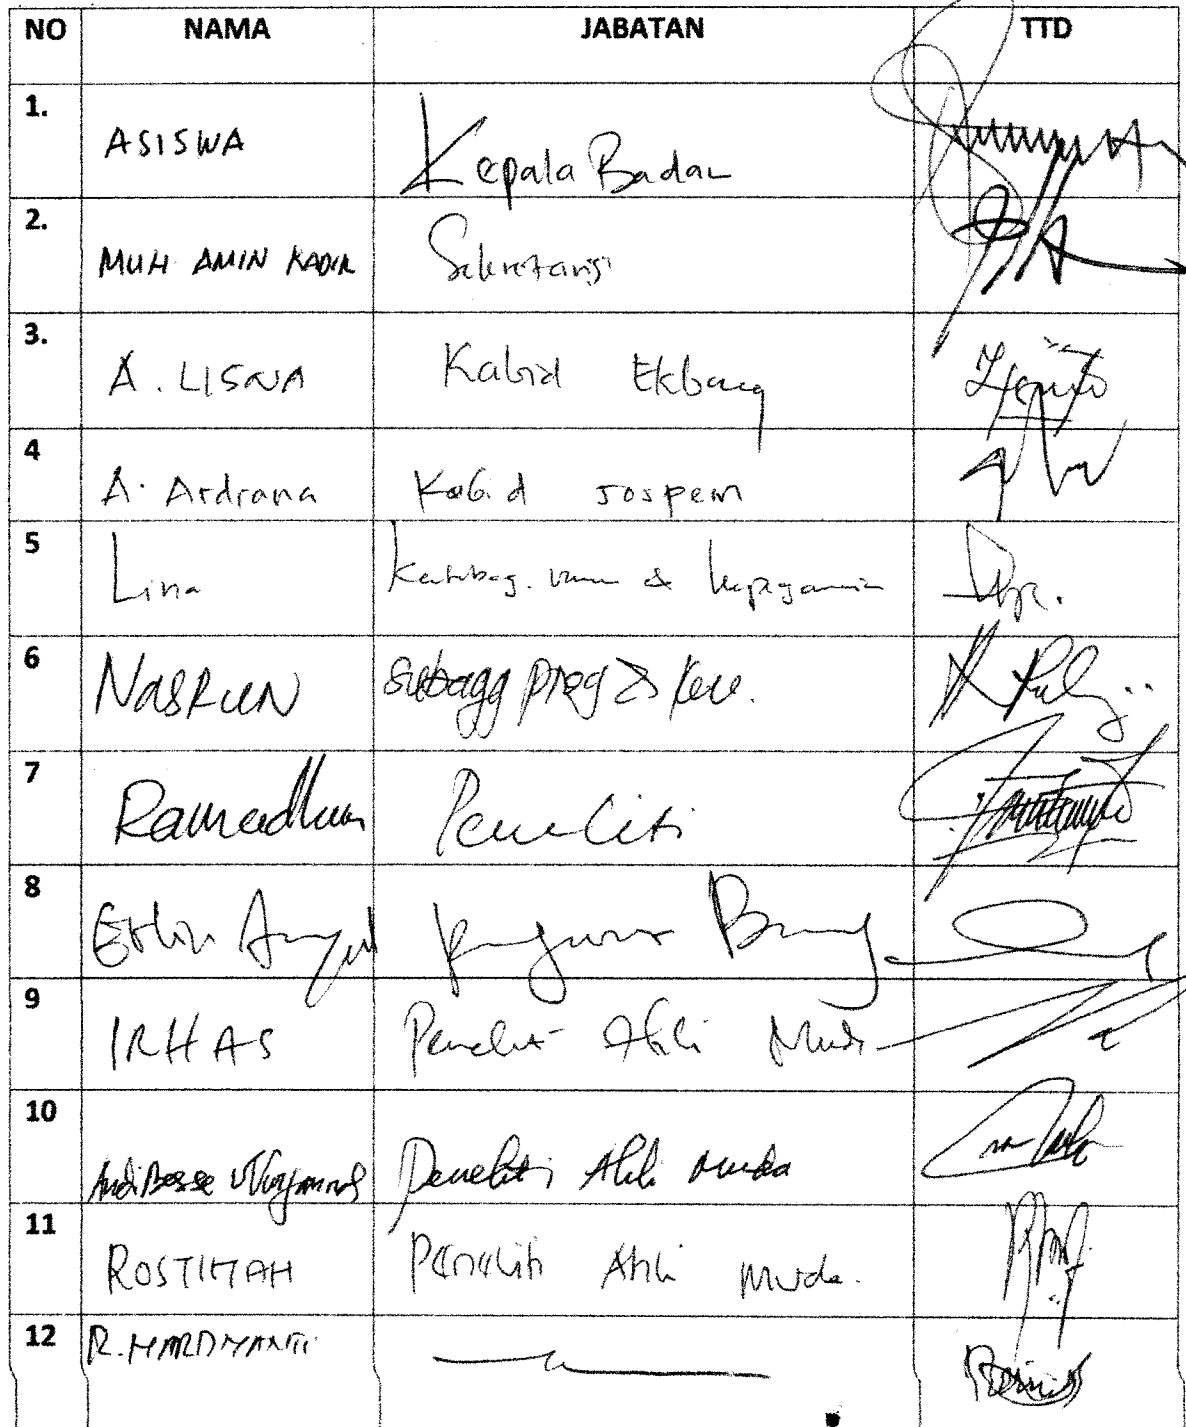 NO NAMA JABATAN TTD
1. ASISWA Kepala Badan
2. MUH AMIN KADIR Sekretaris
3. A. LISNA Kabid Ekbang
4 A. Ardiana Kabid sospem
5 Lina Kasubbag. umum & kepegawaian
6 NASRUN Subagg prog & keu.
7 Ramadhan Peneliti
8 Barang
9 IRHAS Peneliti Ahli Muda
10 Andi Besse Peneliti Ahli Muda
11 ROSTINAH Peneliti Ahli Muda.
12 R. HARDIYANTI